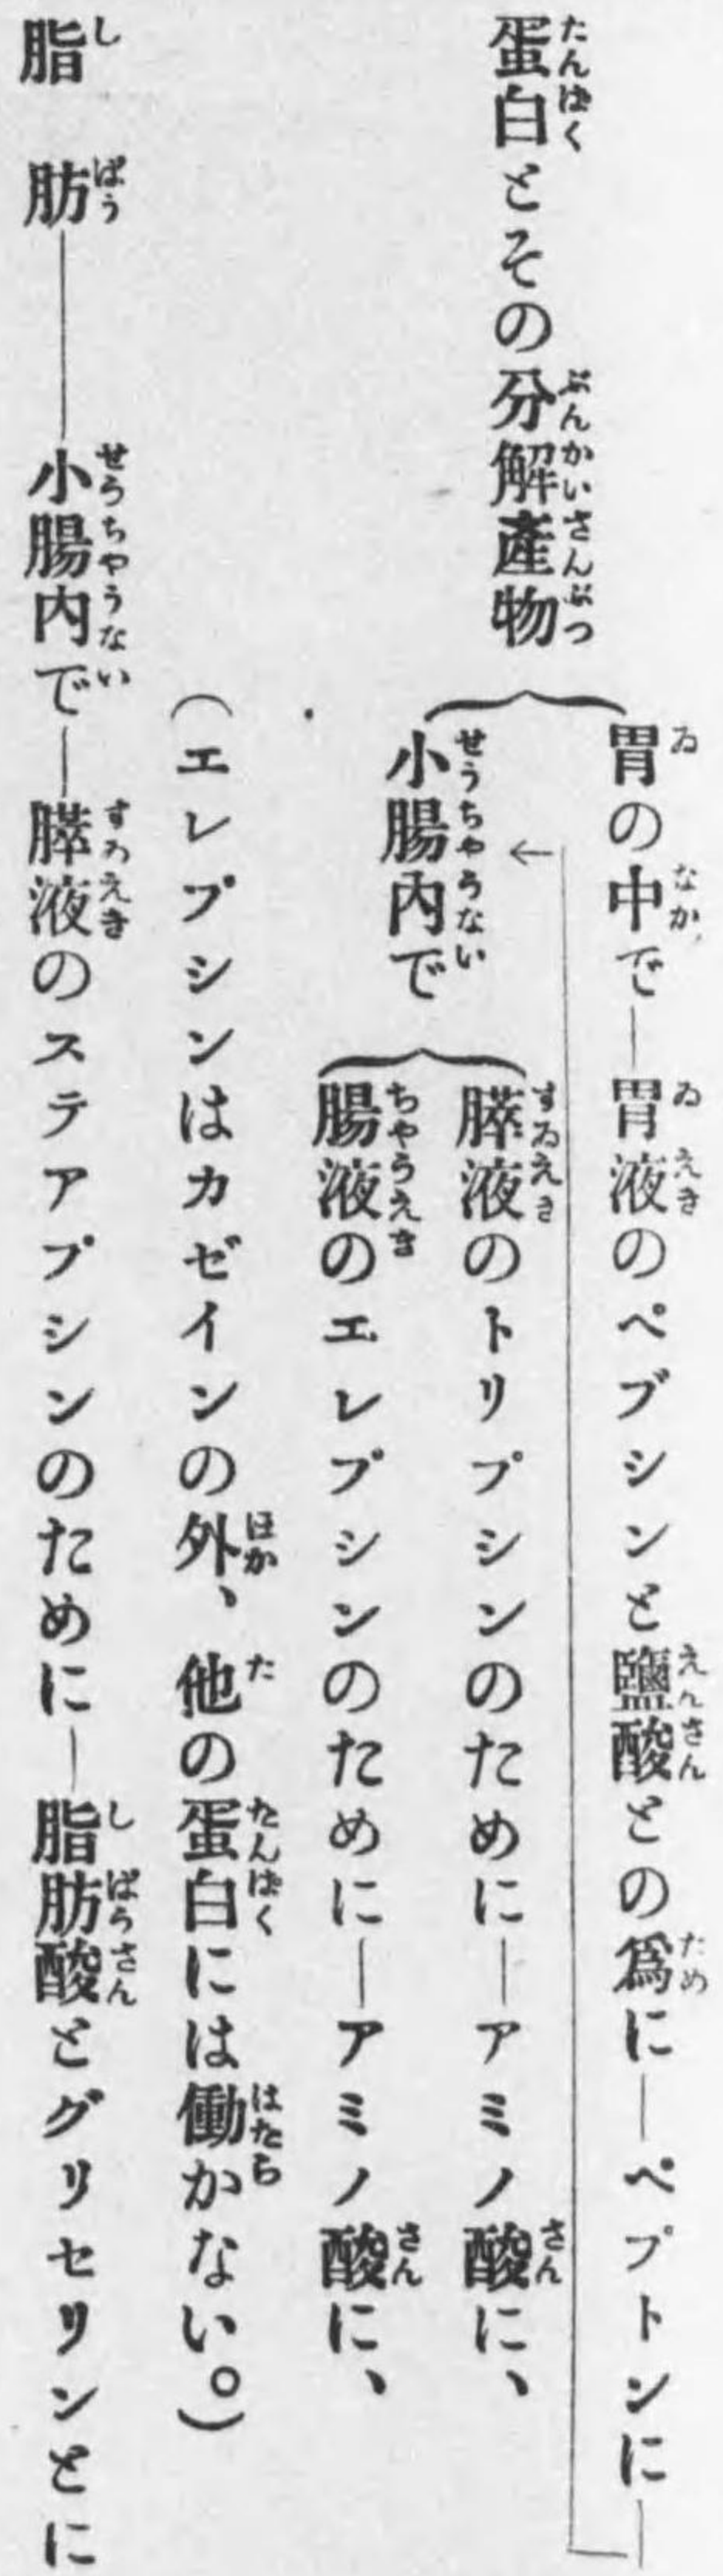 蛋白とその分解産物
胃の中で―胃液のペプシンと鹽酸との爲に―ペプトンに―
小腸内で
膵液のトリプシンのために―アミノ酸に、
腸液のエレプシンのために―アミノ酸に、
（エレプシンはカゼインの外、他の蛋白には働かない。）
脂肪――小腸内で―膵液のステアプシンのために―脂肪酸とグリセリンとに